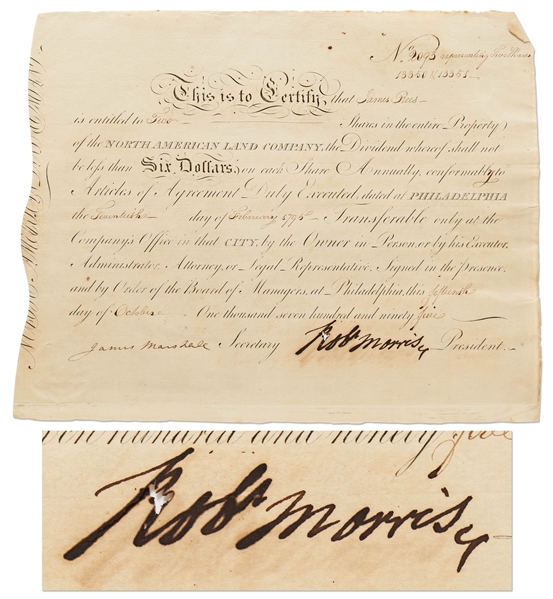 No. 3093 representing Two Shares
13350 & 13351
This is to Certify, that James Rees
is entitled to Two Shares in the entire Property
of the NORTH AMERICAN LAND COMPANY, the Dividend whereof shall not
be less than Six Dollars, on each Share Annually, conformably to
Articles of Agreement Duly Executed, dated at PHILADELPHIA
the Twentieth day of February 1795 Transferable only at the
Company's Office in that CITY, by the Owner in Person, or by his Executor,
Administrator, Attorney, or Legal Representative. Signed in the Presence,
and by Order of the Board of Managers, at Philadelphia, this fifteenth
day of October One thousand seven hundred and ninety five
James Marshall Secretary Robt Morris President
hundred and ninety five
Robt Morris